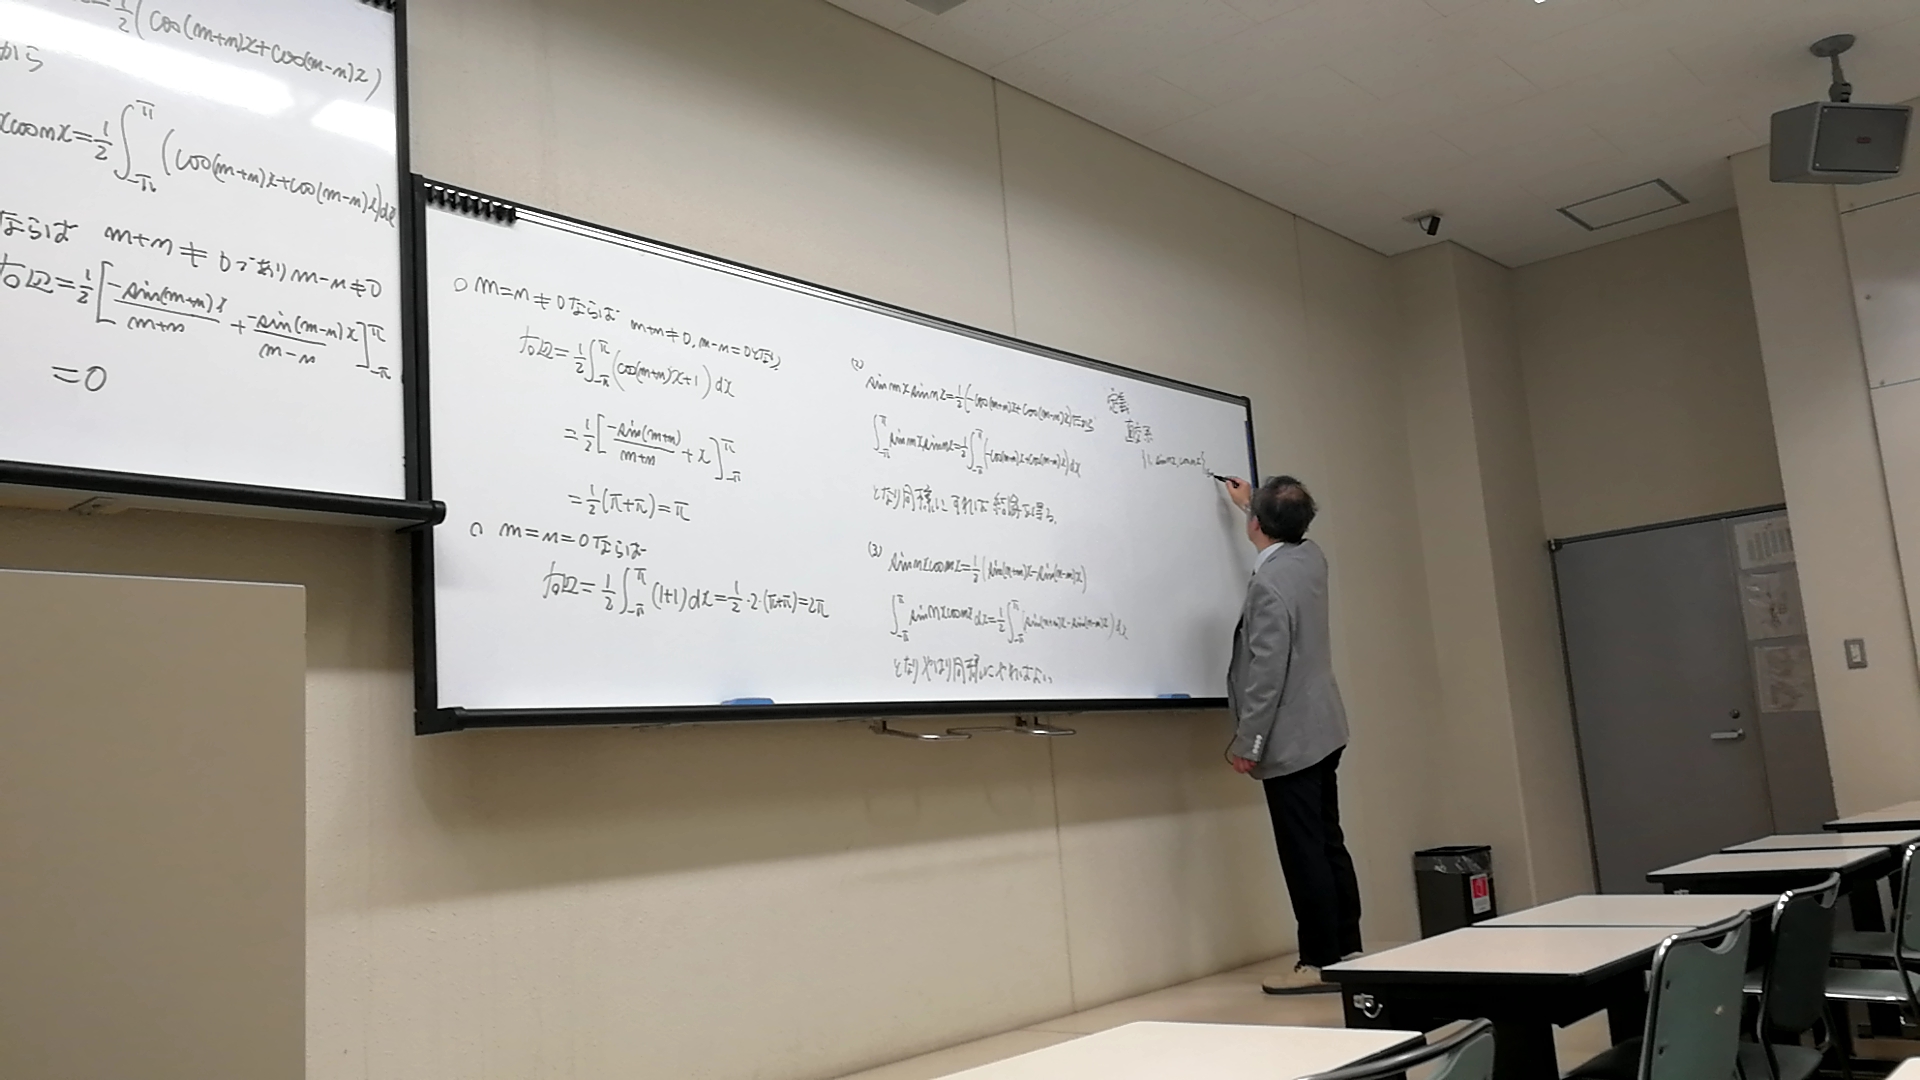 =1/2(cos(m+n)x+cos(m-n)x)
から
xcosnx=1/2∫_{-π}^{π}(cos(m+n)x+cos(m-n)x)dx
ならば m+n≠0であり m-n≠0
右辺=1/2[-sin(m+n)x/m+n+-sin(m-n)x/m-n]_{-π}^{π}
=0
○ m=n≠0ならば m+n≠0, m-n=0となり
右辺=1/2∫_{-π}^{π}(cos(m+n)x+1)dx
=1/2[-sin(m+n)/m+n+x]_{-π}^{π}
=1/2(π+π)=π
○ m=n=0ならば
右辺=1/2∫_{-π}^{π}(1+1)dx=1/2・2・(π+π)=2π
(2)
sinmxsinnx=1/2(-cos(m+n)x+cos(m-n)x)だから
∫_{-π}^{π}sinmxsinnx=1/2∫_{-π}^{π}(-cos(m+n)x+cos(m-n)x)dx
となり同様にすれば結論を得る.
(3)
sinmxcosnx=1/2(sin(m+n)x-sin(m-n)x)
∫_{-π}^{π}sinmxcosnxdx=1/2∫_{-π}^{π}(sin(m+n)x-sin(m-n)x)dx
となりやはり同様にやればよい
定義
直交系
{1, sinnx, cosnx}